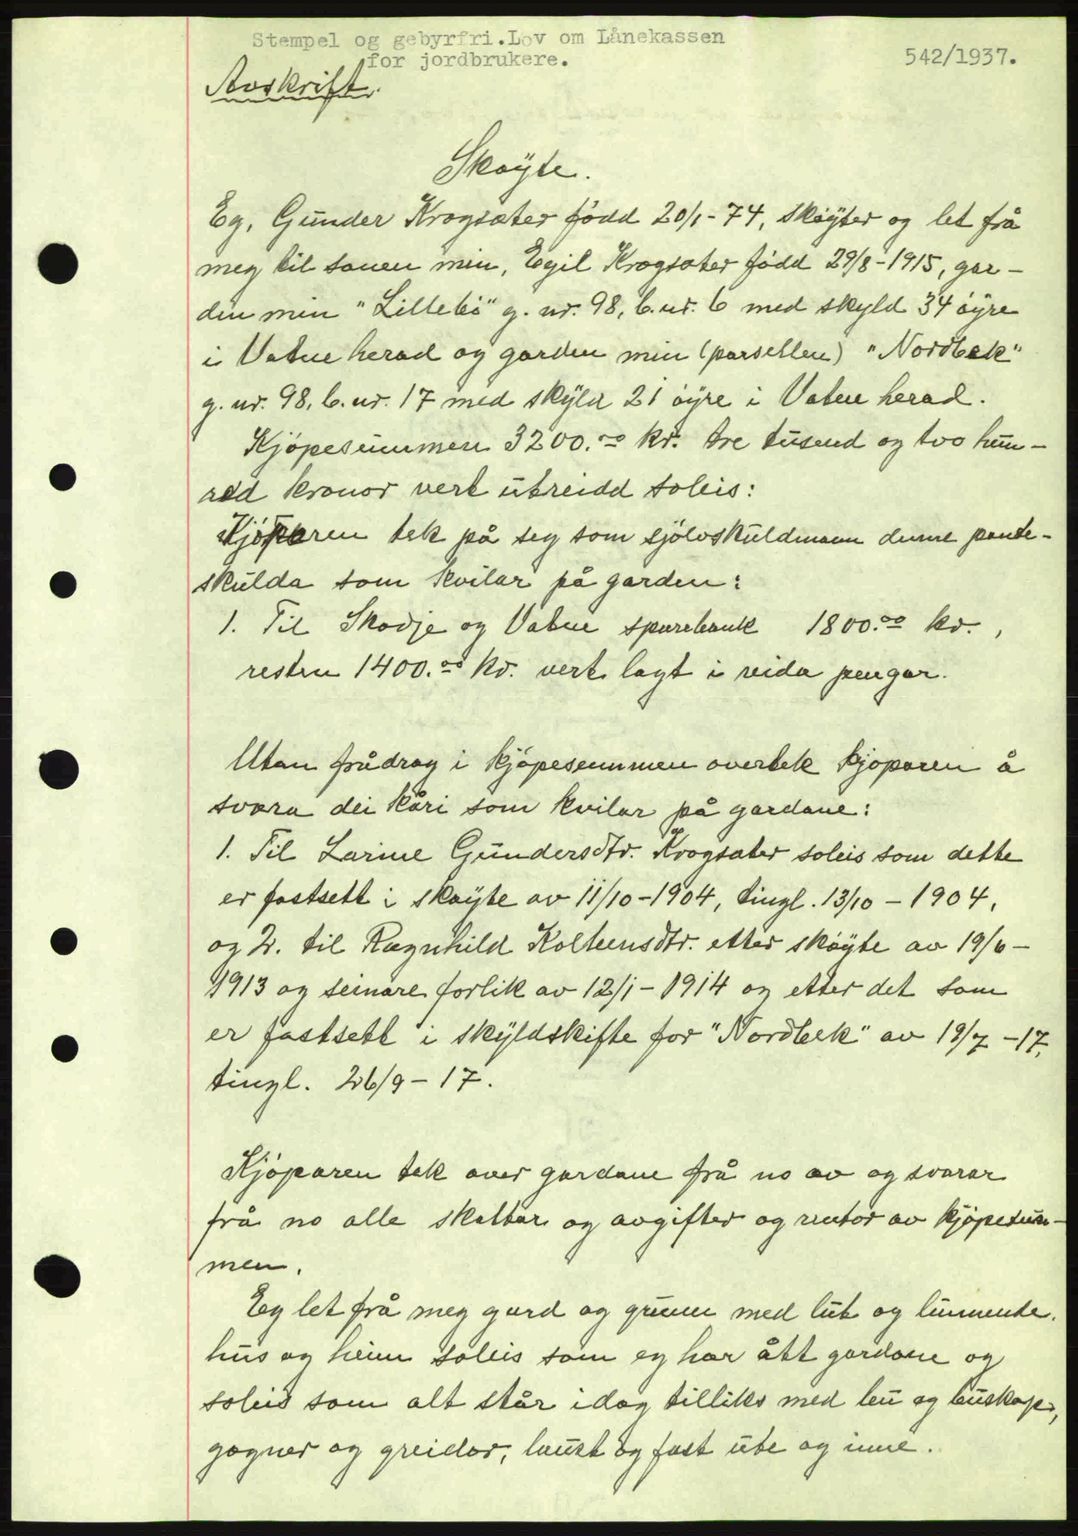 Stempel og gebyrfri.Lov om Lånekassen
for jordbrukere.
542/1937.
Avskrift.
Skøyte.
Eg, Gunder Krogsæter fødd 20/1-74, skøyter og let frå
meg til sonen min, Egil Krogsæter fødd 29/8-1915, gar-
den min "Lillebö" g. nr. 98, b. nr. 6 med skyld 34 öyre
i Vatne herad og garden min (parsellen) "Nordbek"
g. nr. 98, b. nr. 17 med skyld 21 öyre i Vatne herad.
Kjöpesummen 3200.00 kr. tre tusend og tvo hun-
red kronor vert utreidd soleis:
Kjöparen tek på seg som sjölvskuldmann denne pante-
skulda som kvilar på garden:
1. Til Skodje og Vatne sparebank 1800.00 kr.,
resten 1400.00 kr. vert lagt i reida pengar.
Utan frådrag i kjöpesummen overtek kjöparen å
svara dei kåri som kvilar på gardane:
1. Til Larine Gundersdtr. Krogsæter soleis som dette
er fastsett i skøyte av 11/10-1904, tingl. 13/10-1904,
og 2. til Ragnhild Kolbensdtr. etter skøyte av 19/6-
1913 og seinare forlik av 12/1-1914 og etter det som
er fastsett i skyldskifte for "Nordbek" av 19/7-17,
tingl. 26/9-17.
Kjöparen tek over gardane frå no av og svarar
frå no alle skattar og avgifter og rentor av kjöpesum-
men.
Eg let frå meg gard og grunn med lut og lunnende.
hus og heim soleis som eg har ått gardane og
soleis som alt står idag tilliks med bu og buskap,
gogner og greidor, laust og fast ute og inne.